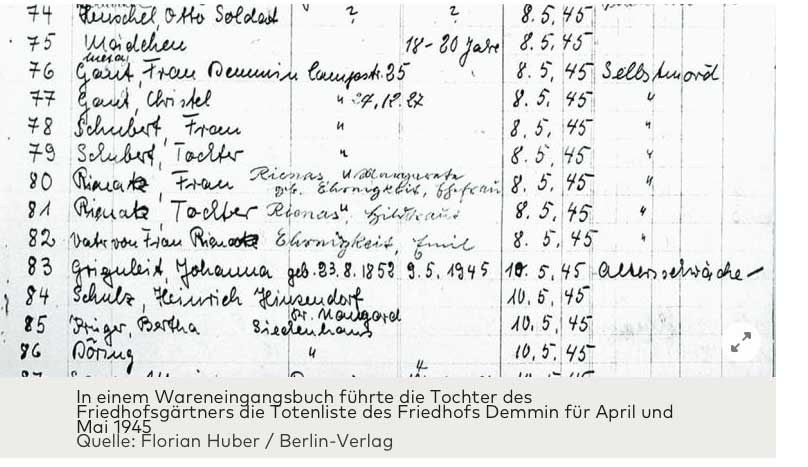 74 Henschel, Otto Soldat ? ? 8. 5. 45
75 Mädchen 18-20 Jahre 8. 5. 45
76 Gaut, Frau Demmin 25 8. 5. 45 Selbstmord
77 Gaut, Christel " 27.12.27 8. 5. 45 "
78 Schubert, Frau " 8. 5. 45 "
79 Schubert, Tochter " 8. 5. 45 "
80 Rienatz, Frau Rienas, geb. Ehronigkeit, Ehefrau 8. 5. 45 "
81 Rienatz, Tochter Rienas " 8. 5. 45 "
82 Vater von Frau Rienatz Ehronigkeit, Emil 8. 5. 45 "
83 Griguleit, Johanna geb. 23.8.1852 9.5.1945 10. 5. 45 Altersschwäche
84 Schulz, Heinrich Hinzendorf 10. 5. 45
Kr. Naugard
85 Krüger, Bertha Siedenhaus 10. 5. 45
86 Döring " 10. 5. 45
In einem Wareneingangsbuch führte die Tochter des
Friedhofsgärtners die Totenliste des Friedhofs Demmin für April und
Mai 1945
Quelle: Florian Huber / Berlin-Verlag